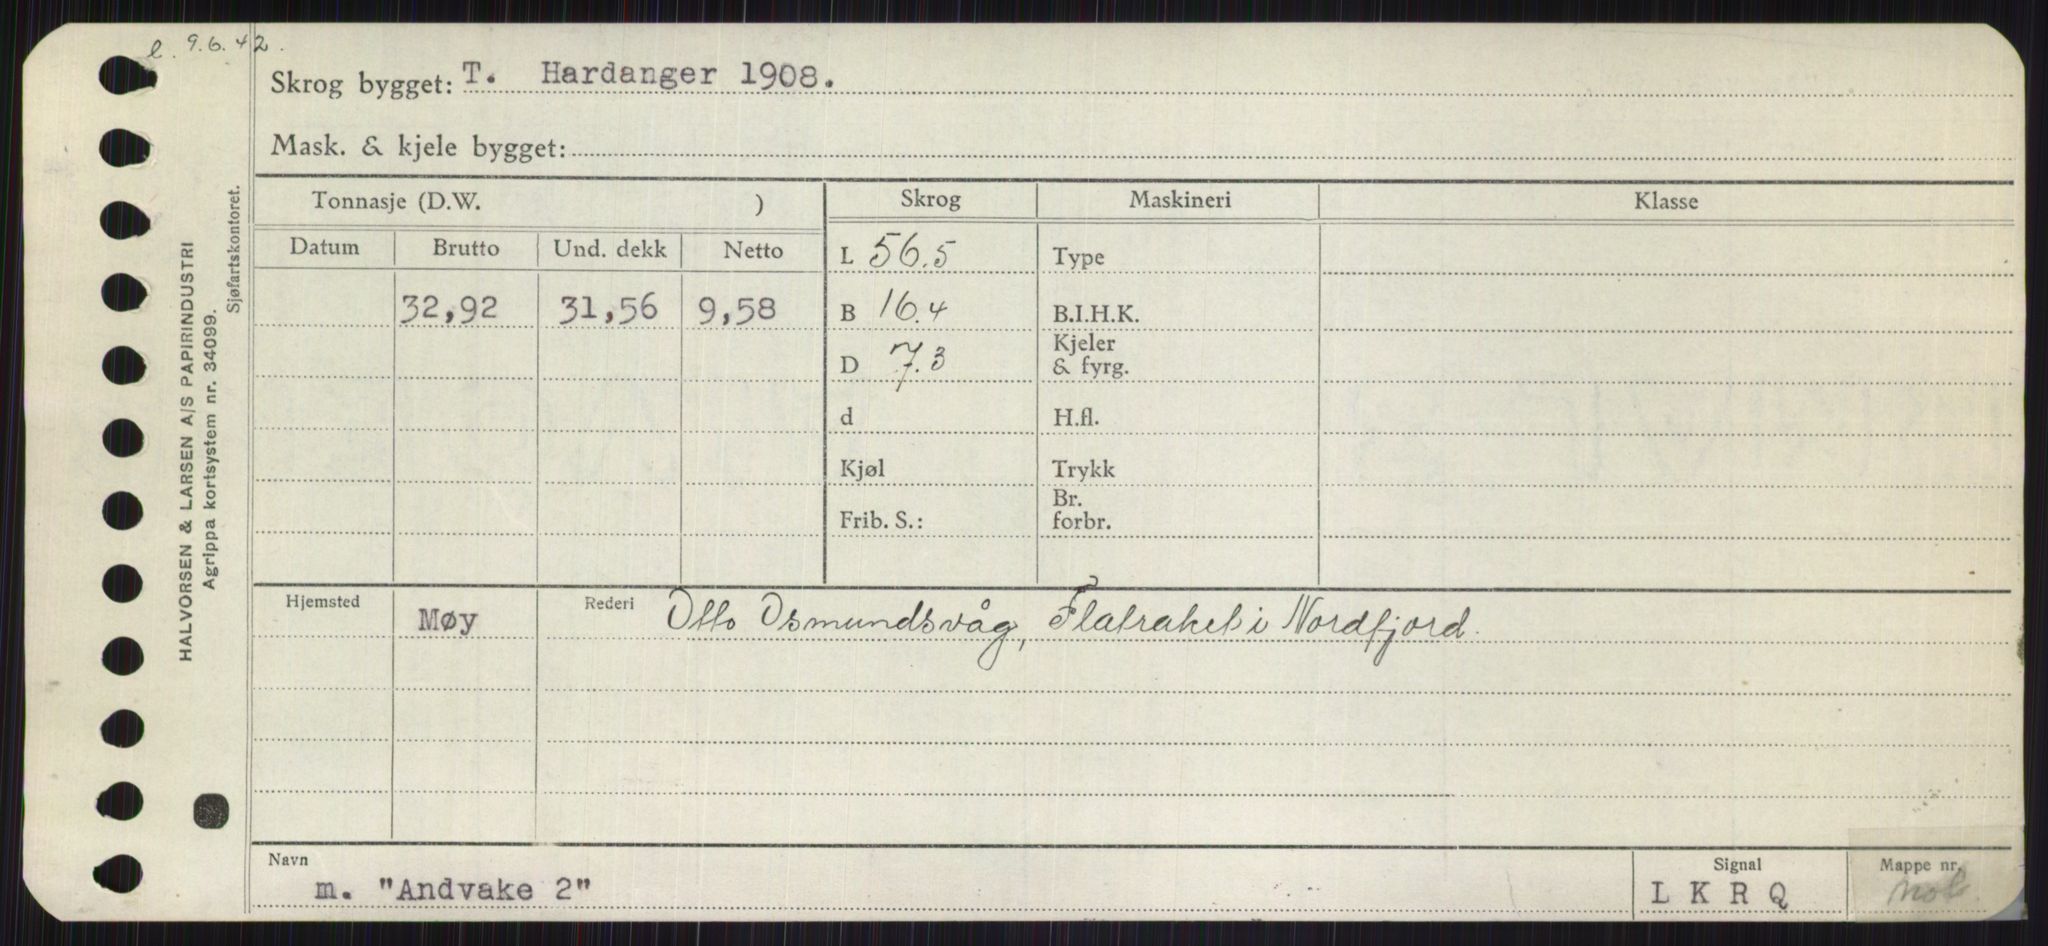 l. 9.6.42.
Skrog bygget: T. Hardanger 1908.
Mask. & kjele bygget:
HALVORSEN & LARSEN A/S PAPIRINDUSTRI
Agrippa kortsystem nr. 34099.
Sjøfartskontoret.
Tonnasje (D.W. ) Skrog Maskineri Klasse
Datum Brutto Und. dekk Netto L 56.5 Type
32,92 31,56 9,58 B 16.4 B.I.H.K.
D 7.3 Kjeler
& fyrg.
d H.fl.
Kjøl Trykk
Frib. S.: Br.
forbr.
Hjemsted Møy Rederi Otto Osmundsvåg, Flatraket i Nordfjord.
Navn Signal Mappe nr.
m. "Andvake 2" L K R Q mob.